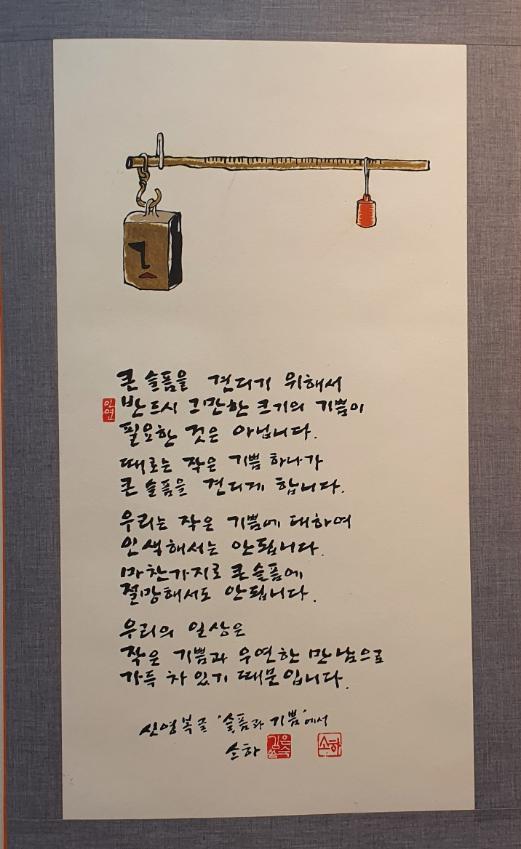 큰 슬픔을 견디기 위해서
반드시 그만한 크기의 기쁨이
필요한 것은 아닙니다.
때로는 작은 기쁨 하나가
큰 슬픔을 견디게 합니다.
우리는 작은 기쁨에 대하여
인색해서는 안됩니다.
마찬가지로 큰 슬픔에
절망해서도 안됩니다.
우리의 일상은
작은 기쁨과 우연한 만남으로
가득 차 있기 때문입니다.
신영복 글 '슬픔과 기쁨'에서
소하
소하